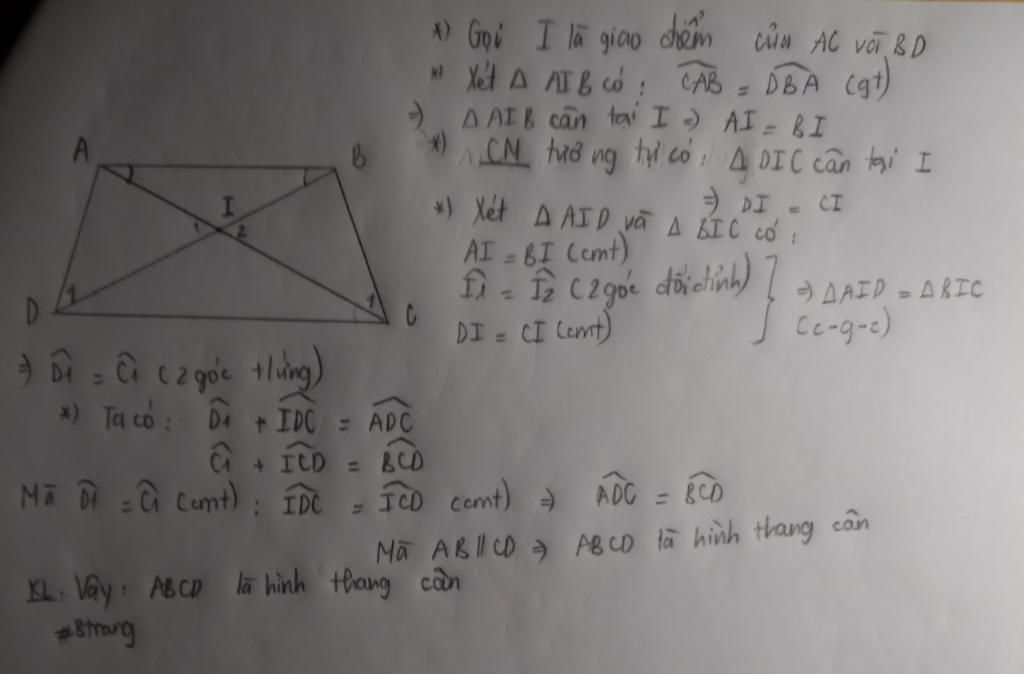 *) Gọi I là giao điểm của AC với BD
*) Xét Δ AIB có: \widehat{CAB} = \widehat{DBA} (gt)
=) Δ AIB cân tại I => AI = BI
*) CM tương tự có: Δ DIC cân tại I
=) DI = CI
*) Xét Δ AID và Δ BIC có:
AI = BI (cmt)
\widehat{I1} = \widehat{I2} (2 góc đối đỉnh)
DI = CI (cmt)
=) Δ AID = Δ BIC
(c-g-c)
A
B
I
1
2
D
1
1
C
=) \widehat{D1} = \widehat{C1} (2 góc t/ứng)
*) Ta có: \widehat{D1} + \widehat{IDC} = \widehat{ADC}
\widehat{C1} + \widehat{ICD} = \widehat{BCD}
Mà \widehat{D1} = \widehat{C1} (cmt); \widehat{IDC} = \widehat{ICD} (cmt) => \widehat{ADC} = \widehat{BCD}
Mà AB // CD => ABCD là hình thang cân
KL: Vậy: ABCD là hình thang cân
#Btrang